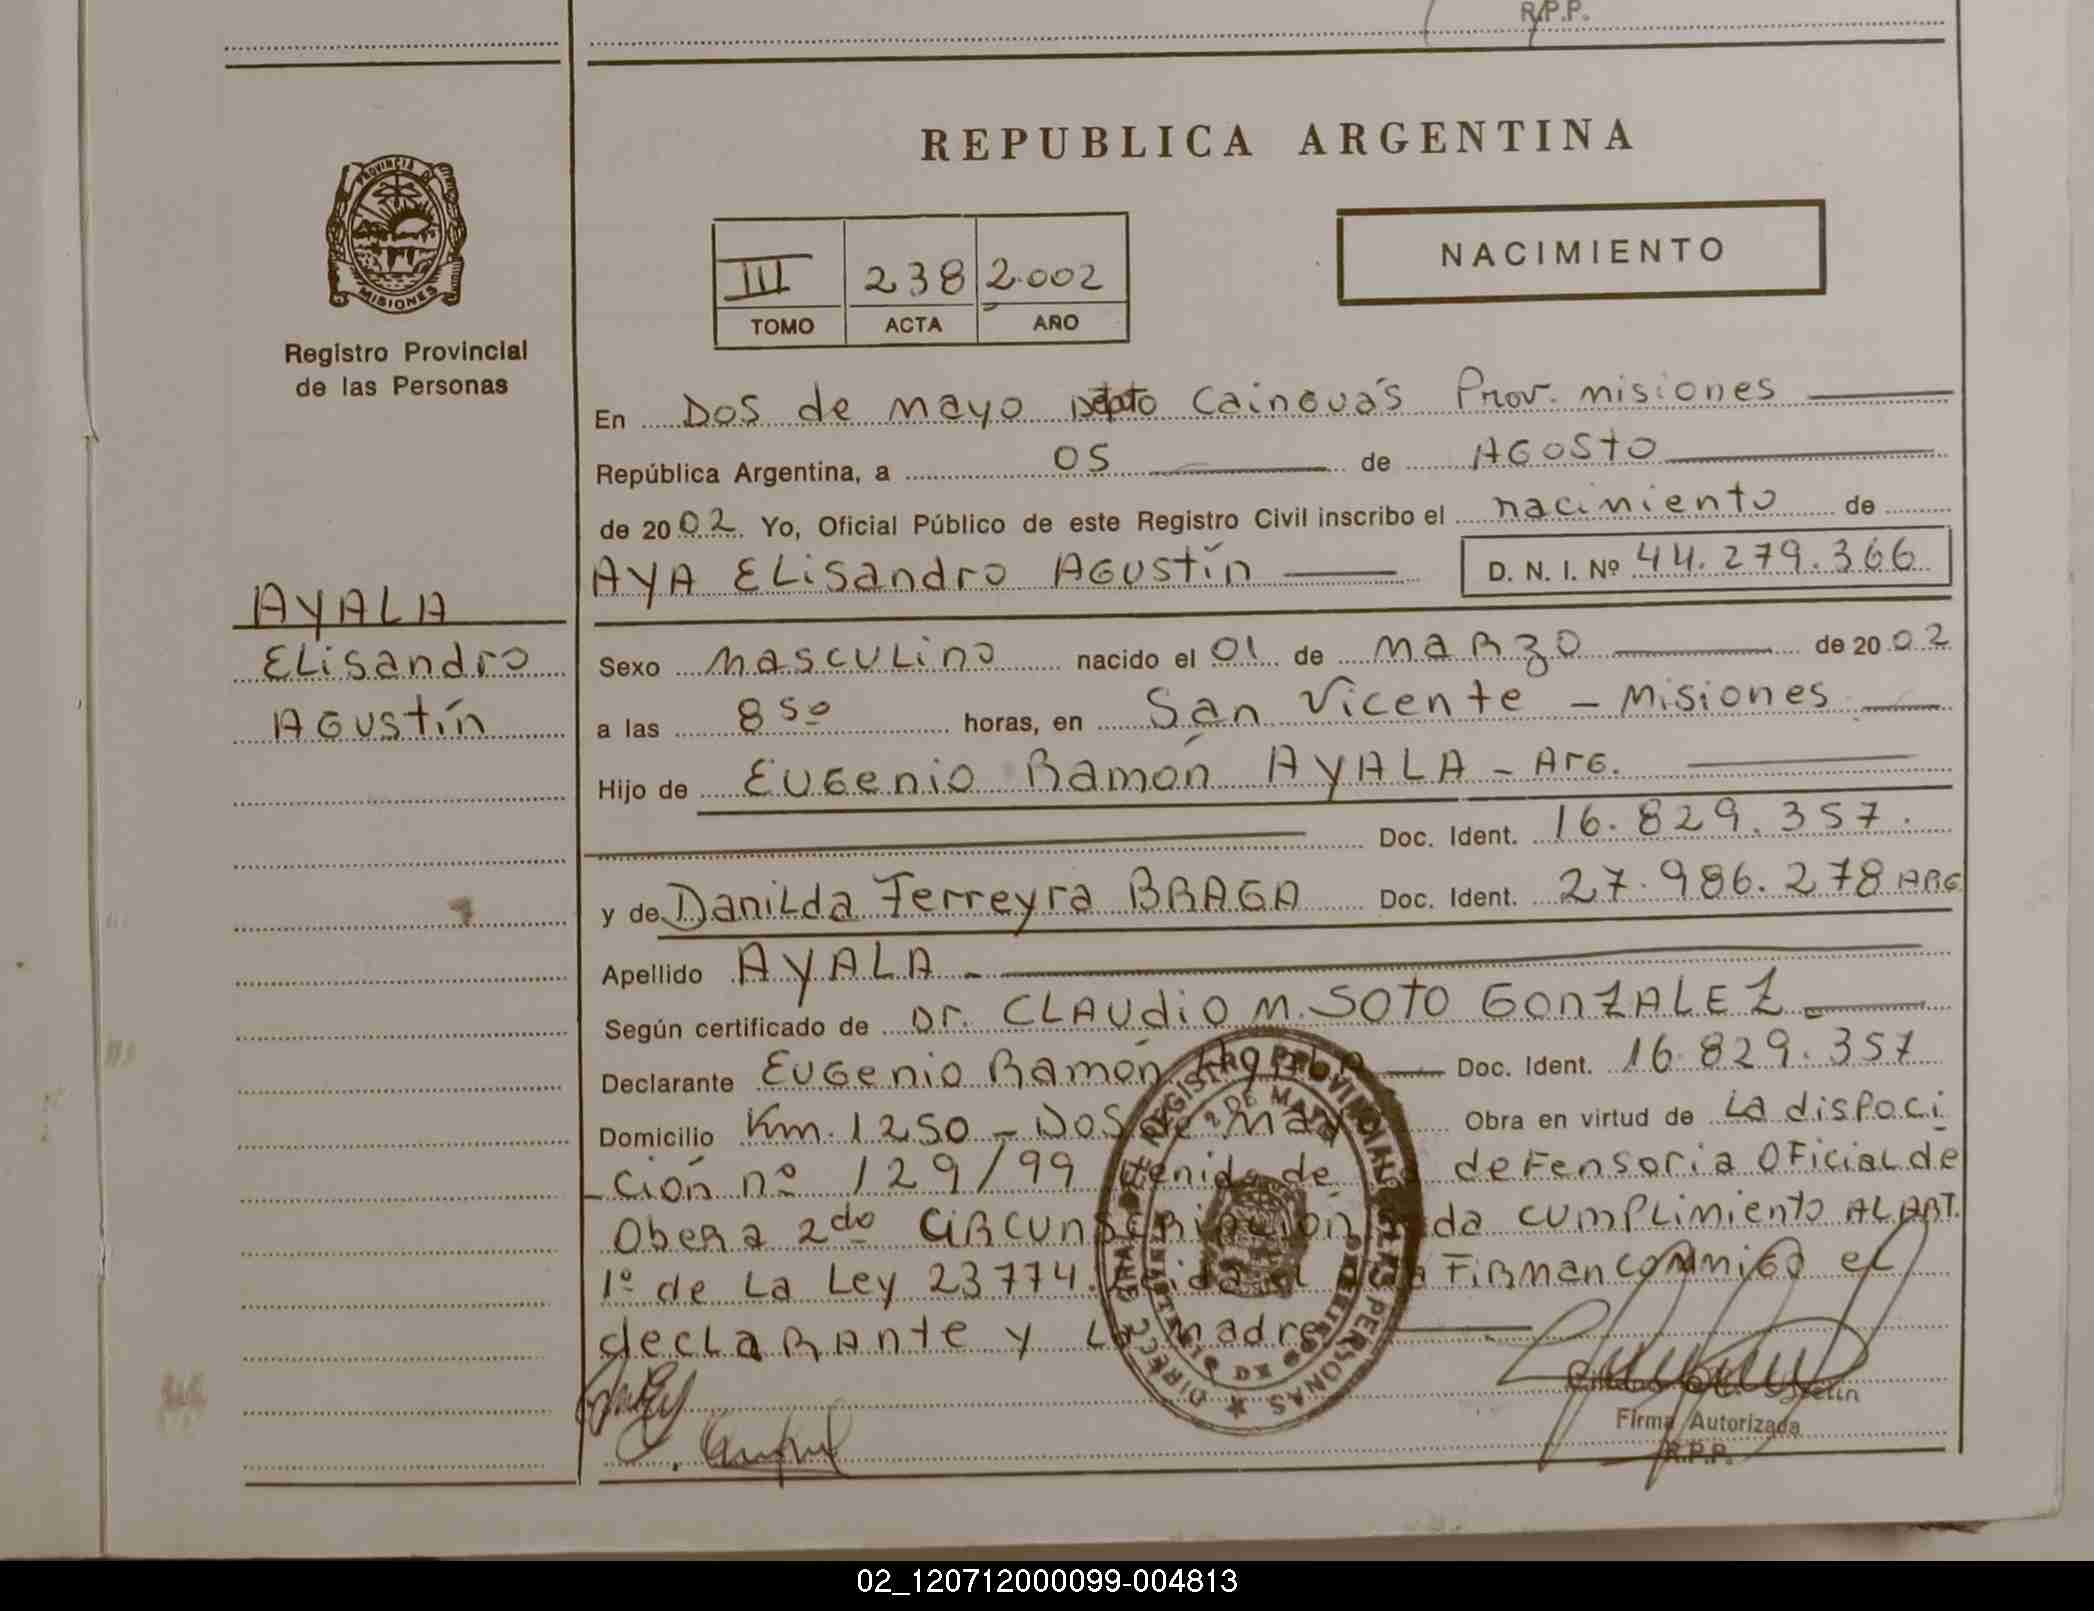 R.P.P.
REPUBLICA ARGENTINA
PROVINCIA DE
MISIONES
Registro Provincial
de las Personas
NACIMIENTO
III 238 2.002
TOMO ACTA AÑO
En Dos de mayo Depto Cainguás Prov. misiones
República Argentina, a 05 de AGosto
de 2002 Yo, Oficial Público de este Registro Civil inscribo el nacimiento de
AYA ELisandro AGustín D. N. I. Nº 44.279.366
AYALA
ELisandro
AGustín
Sexo masculino nacido el 01 de marzo de 2002
a las 8 50 horas, en San Vicente - Misiones
Hijo de Eugenio Ramón AYALA - Arg.
Doc. Ident. 16.829.357.
y de Danilda Ferreyra BRAGA Doc. Ident. 27.986.278 ARG
Apellido AYALA -
Según certificado de Dr. CLAudio M. SOTO GONZALEZ
Declarante Eugenio Ramón Doc. Ident. 16.829.357
Domicilio Km. 1250 - Dos de mayo Obra en virtud de La dispoci
ción nº 129/99 defensoria oficial de
Obera 2do CIRCUNSCRIPCIÓN cumplimiento AL ART.
1º de La Ley 23774. Firman conmigo el
declarante y La madre
DIREC. GRAL. DEL REGISTRO PROVINCIAL DE LAS PERSONAS
2 DE MAYO
Firma Autorizada
R.P.P.
02_120712000099-004813